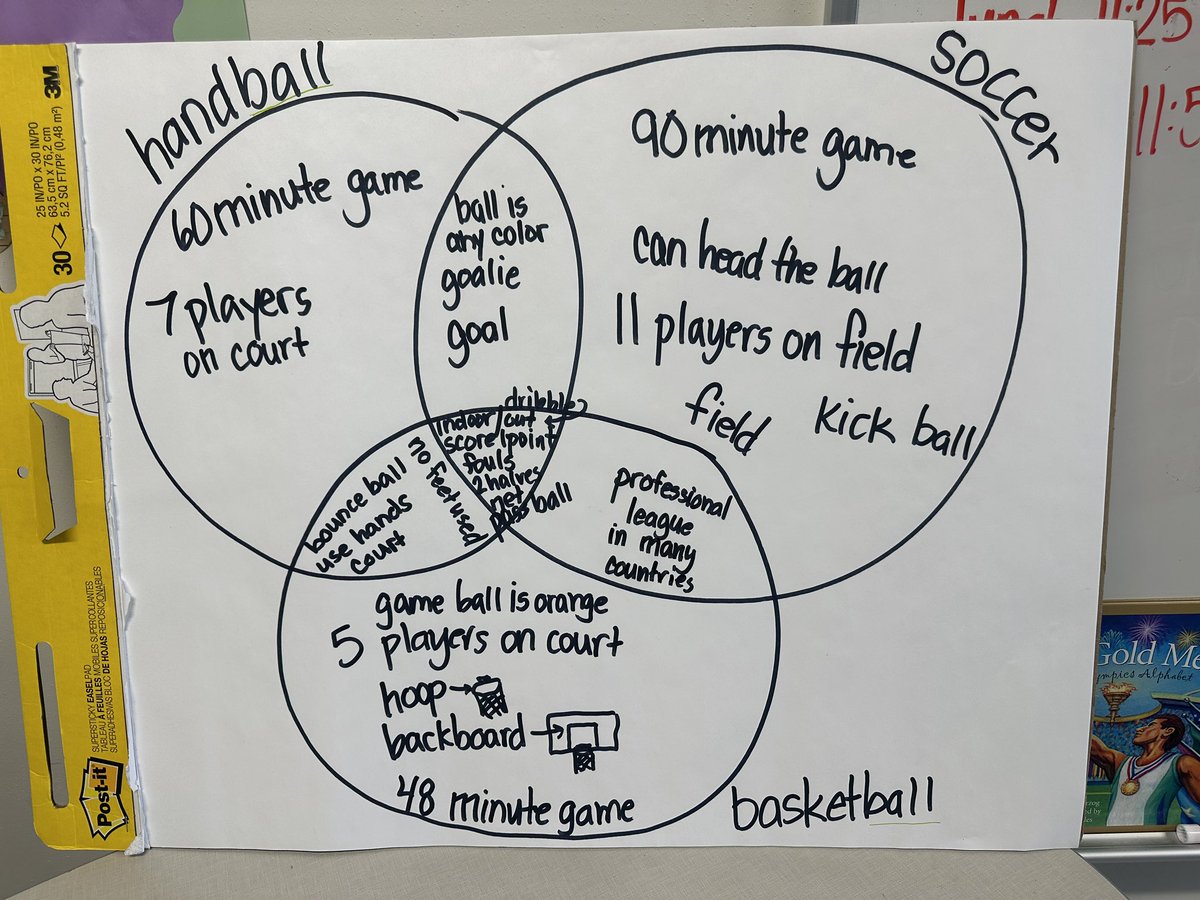 lunch 11:25
11:5
handball
soccer
60 minute game
7 players
on court
ball is
any color
goalie
goal
90 minute game
can head the ball
11 players on field
field
kick ball
dribble
indoor/out
score 1 point
fouls
2 halves
net
pass ball
bounce ball
use hands
court
no feet used
professional
league
in many
countries
game ball is orange
5 players on court
hoop
backboard
48 minute game
basketball
3M
25 IN/PO x 30 IN/PO
63,5 cm x 76,2 cm
5.2 SQ FT/PI² (0,48 m²)
30
SUPERSTICKY EASEL PAD
TABLEAU À FEUILLES MOBILES SUPERCOLLANTES
SUPERADHESIVAS BLOC DE HOJAS REPOSICIONABLES
Post-it
Gold Me
ympics Alphabet